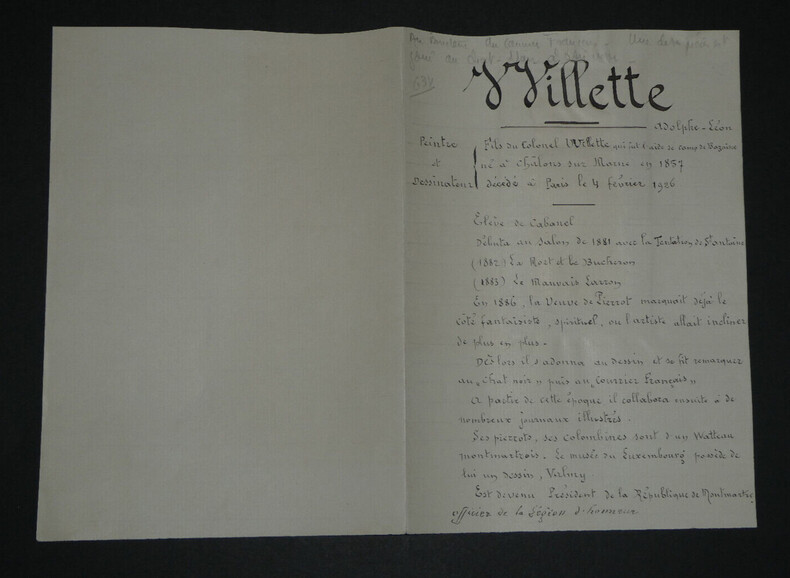 du Courrier Français. Une
638
Willette
Adolphe-Léon
Peintre
et
Dessinateur
Fils du Colonel Willette qui fut l'aide de camp de Bazaine
né à Châlons sur Marne en 1857
décédé à Paris le 4 février 1926
Elève de Cabanel
Débuta au salon de 1881 avec la Tentation de St Antoine
(1882) La Mort et le Bucheron
(1883) Le Mauvais Larron
En 1886, la Veuve de Pierrot marquait déjà le
côté fantaisiste, spirituel, ou l'artiste allait incliner
de plus en plus.
Dès lors il s'adonna au dessin et se fit remarquer
au "Chat noir" puis au "Courrier Français"
A partie de cette époque il collabora ensuite à de
nombreux journaux illustrés.
Ses pierrots, ses colombines sont d'un Watteau
montmartrois. Le musés du Luxembourg possède de
lui un dessin,
Est devenu Président de la République de Montmartre
officier de la Légion d'honneur